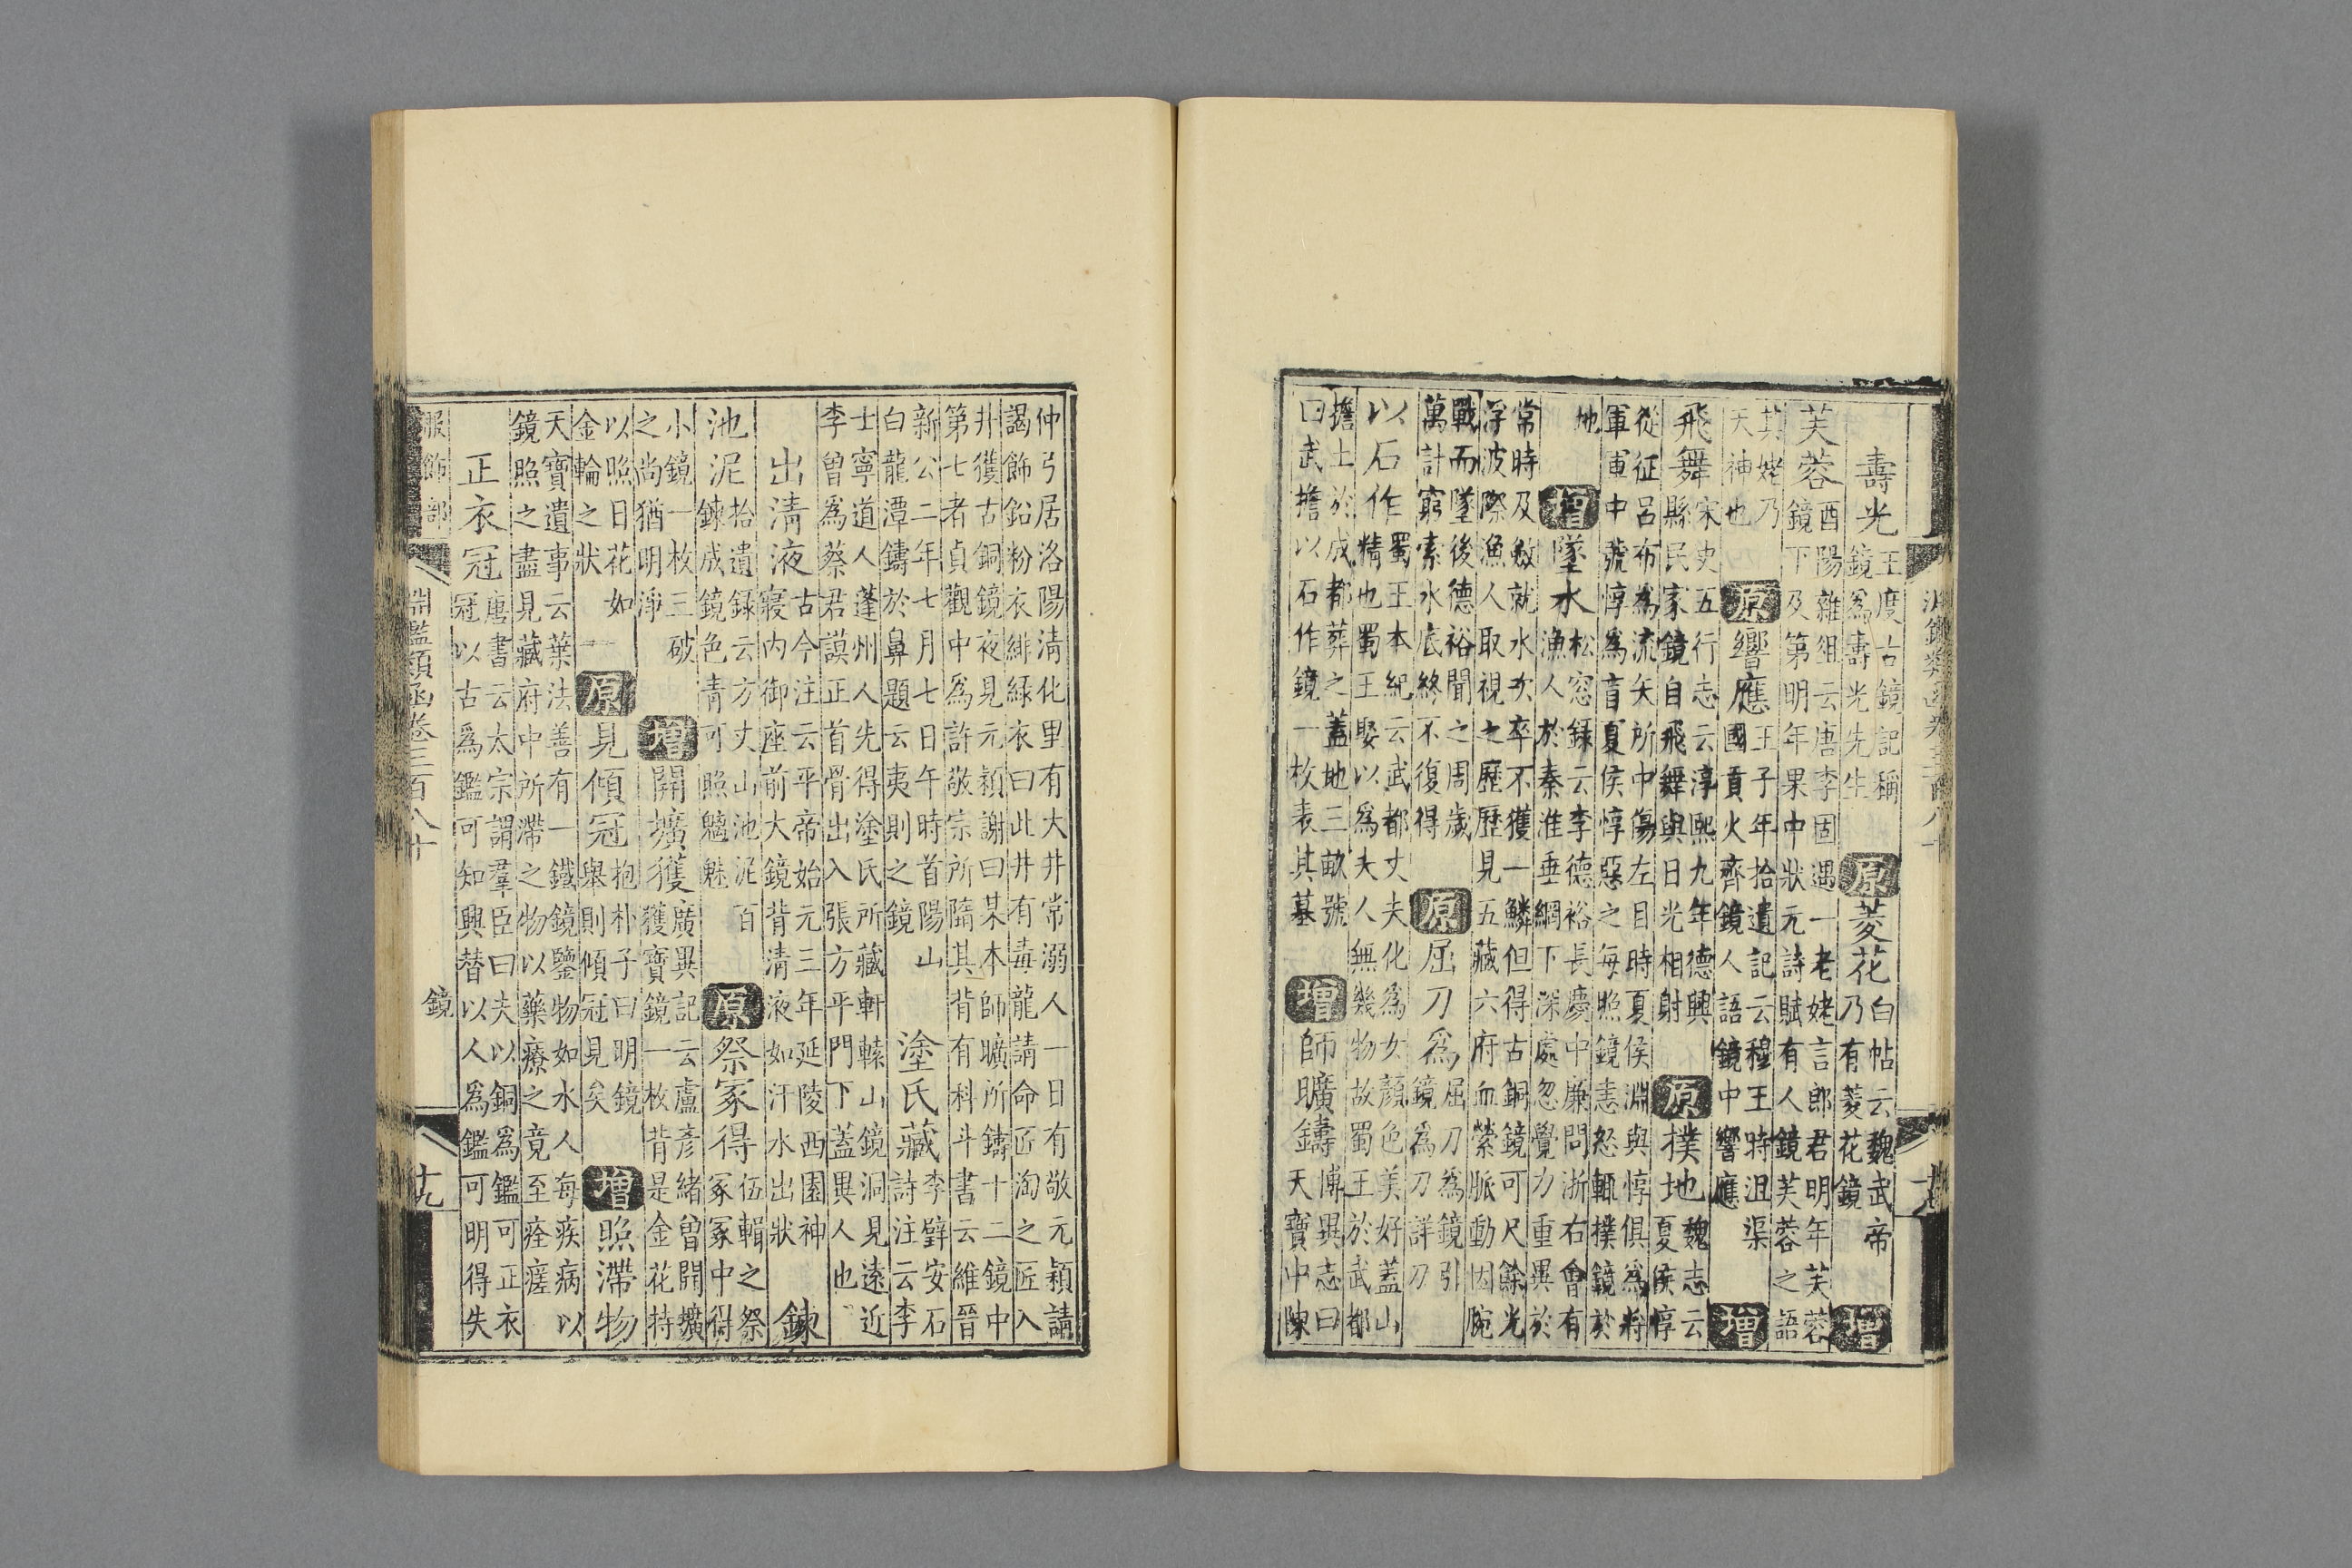 壽光
王度古鏡記稱
鏡爲壽光先生
原
菱花
白帖云魏武帝
乃有菱花鏡
增
芙蓉
酉陽雜俎云唐李固遇一老姥言郎君明年芙蓉
鏡下及第明年果中狀元詩賦有人鏡芙蓉之語
其姥乃
天神也
原
響應
王子年拾遺記云穆王時沮渠
國貢火齊鏡人語鏡中響應
增
飛舞
宋史五行志云淳熙九年德興
縣民家鏡自飛舞與日光相射
原
撲地
魏志云
夏侯惇
從征呂布爲流矢所中傷左目時夏侯淵與惇俱爲將
軍軍中號惇爲盲夏侯惇惡之每照鏡恚怒輒撲鏡於
地
增
墜水
松窓錄云李德裕長慶中廉問浙右會有
漁人於秦淮垂網下深處忽覺力重異於
常時及斂就水次卒不獲一鱗但得古銅鏡可尺餘光
浮波際漁人取視之歷歷見五藏六府血縈脈動因腕
戰而墜後德裕聞之周歲
萬計窮索水底終不復得
原
屈刀爲
屈刀爲鏡引
鏡爲刀詳刀
以石作
蜀王本紀云武都丈夫化爲女顏色美好蓋山
精也蜀王娶以爲夫人無幾物故蜀王於武都
擔土於成都葬之蓋地三畝號
曰武擔以石作鏡一枚表其墓
增
師曠鑄
博異志曰
天寶中陳
仲弓居洛陽清化里有大井常溺人一日有敬元穎請
謁飾鉛粉衣緋綠衣曰此井有毒龍請命匠淘之匠入
井獲古銅鏡夜見元穎謝曰某本師曠所鑄十二鏡中
第七者貞觀中爲許敬宗所隨其背有科斗書云維晉
新公二年七月七日午時首陽山
白龍潭鑄於鼻題云夷則之鏡
塗氏藏
李壁安石
詩注云李
士寧道人蓬州人先得塗氏所藏軒轅山鏡洞見遠近
李曾爲蔡君謨正首骨出入張方平門下蓋異人也
出清液
古今注云平帝始元三年延陵西園神
寢內御座前大鏡背清液如汗水出狀
鍊
池泥
拾遺錄云方丈山池泥百
鍊成鏡色青可照魑魅
原
祭冢得
伍輯之祭
冢冢中得
小鏡一枚三破
之尚猶明淨
增
開壙獲
廣異記云盧彥緒曾開壙
獲寶鏡一枚背是金花持
以照日花如
金輪之狀
原
見傾冠
抱朴子曰明鏡
舉則傾冠見矣
增
照滯物
天寶遺事云葉法善有一鐵鏡鑒物如水人每疾病以
鏡照之盡見藏府中所滯之物以藥療之竟至痊瘥
正衣冠
唐書云太宗謂羣臣曰夫以銅爲鑑可正衣
冠以古爲鑑可知興替以人爲鑑可明得失
服飾部
淵鑑類函卷三百八十
鏡
十九